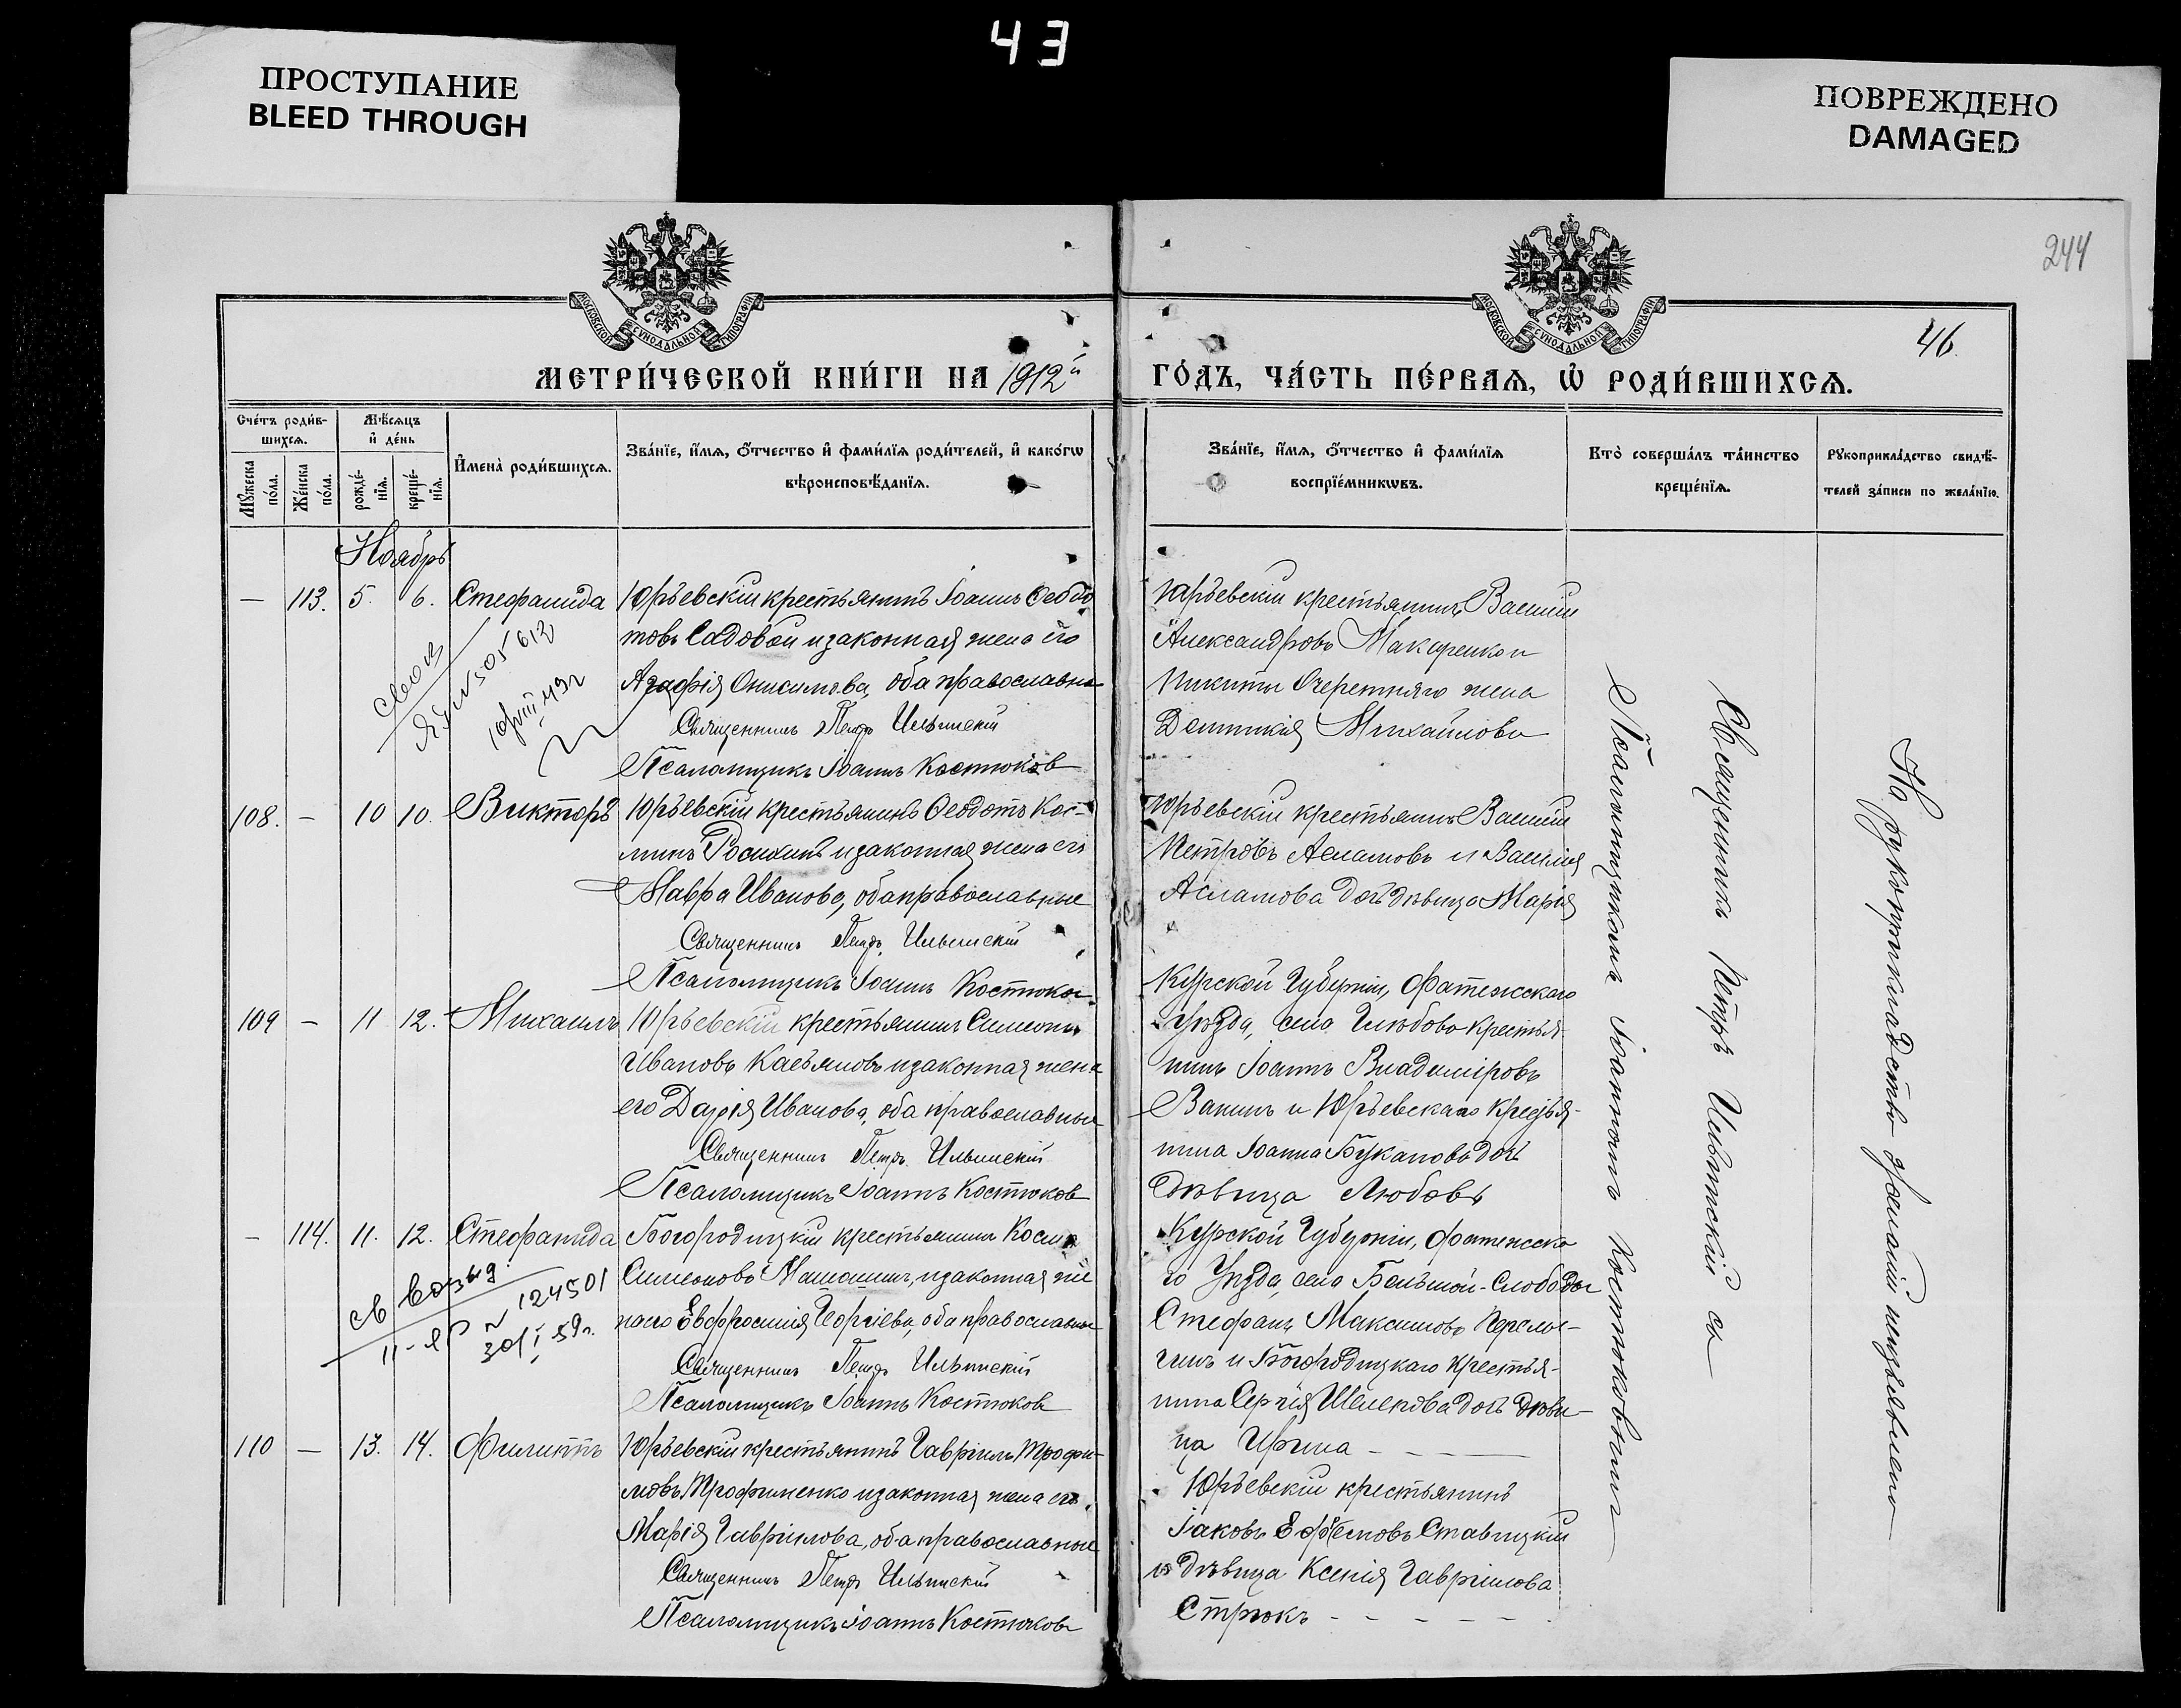 43
ПРОСТУПАНИЕ
BLEED THROUGH
ПОВРЕЖДЕНО
DAMAGED
244
46.
МОСКОВСКОЙ СѴНОДАЛЬНОЙ ТИПОГРАФІИ
МОСКОВСКОЙ СѴНОДАЛЬНОЙ ТИПОГРАФІИ
МЕТРИ́ЧЕСКОЙ КНИ́ГИ НА 1912й
ГО́ДЪ, ЧА́СТЬ ПЕ́РВАѦ, Ѡ҆ РОДИ́ВШИХСѦ.
Сче́тъ роди́в-
шихсѧ.
Мꙋ́жеска по́ла.
Же́нска по́ла.
Мѣ́сѧцъ
и҆ де́нь
рожде́-
нїѧ.
креще́-
нїѧ.
И҆мена̀ роди́вшихсѧ.
Зва́нїе, и҆́мѧ, ѻ҆́тчество и҆ фами́лїѧ роди́телей, и҆ како́гѡ
вѣроисповѣ́данїѧ.
Зва́нїе, и҆́мѧ, ѻ҆́тчество и҆ фами́лїѧ
воспрїе́мникѡвъ.
Кто̀ соверша́лъ та́инство
креще́нїѧ.
Рꙋкоприкла́дство свидѣ́-
телей за́писи по жела́нїю.
Ноябрь
— 113. 5. 6. Стефанида
Юрьевскій крестьянинъ Іоаннъ Ѳеодо
товъ Садовой и законная жена его
Агафія Онисимова, оба православные
Священникъ Петръ Ильинскій
Псаломщикъ Іоаннъ Костюков
Юрьевскій крестьянинъ Василій
Александровъ Макаренко и
Никиты Очеретняго жена
Михайлова
505612
108. — 10 10. Викторъ
Юрьевскій крестьянинъ Ѳеодотъ Кос-
минъ и законная жена его
Мавра Иванова, оба православные
Священникъ Петръ Ильинскій
Псаломщикъ Іоаннъ Костюков
Юрьевскій крестьянинъ Василій
Петровъ Асламовъ и Василія
Асламова дочь дѣвица Марія
109 — 11 12. Михаилъ
Юрьевскій крестьянинъ Симеонъ
Ивановъ Касьяновъ и законная жена
его Дарія Иванова, оба православные
Священникъ Петръ Ильинскій
Псаломщикъ Іоаннъ Костюков
Курской Губерніи, Фатежскаго
Уѣзда, села Глѣбова крестья-
нинъ Іоаннъ Владиміровъ
Ванинъ и Юрьевскаго кресья-
нина Іоанна Букановъ дочь
дѣвица Любовь
— 114. 11. 12. Стефанида
Богородицкій крестьянинъ Косма
Симеоновъ и законная же
на его Евфросинія Георгіева, оба православные
Священникъ Петръ Ильинскій
Псаломщикъ Іоаннъ Костюков
Курской Губерніи, Фатежска
го Уѣзда, села Большой-Слободы
Стефанъ Максимовъ
и Богородицкаго крестья-
нина Сергія Шелехова дочь дѣви-
ца Ирина - - - -
№ 124501
30/I 59г.
110 — 13. 14. Филиппъ
Юрьевскій крестьянинъ Гавріилъ Трофи-
мовъ Трофименко и законная жена его
Марія Гавріилова, оба православные
Священникъ Петръ Ильинскій
Псаломщикъ Іоаннъ Костюков
Юрьевскій крестьянинъ
Іаковъ Ефремовъ Ставицкій
и дѣвица Ксенія Гавріилова
Стрюкъ - - - - -
Священникъ Петръ Ильинскій съ
Псаломщикомъ Іоанномъ Костюковымъ
На рукоприкладство желаній не изъявлено